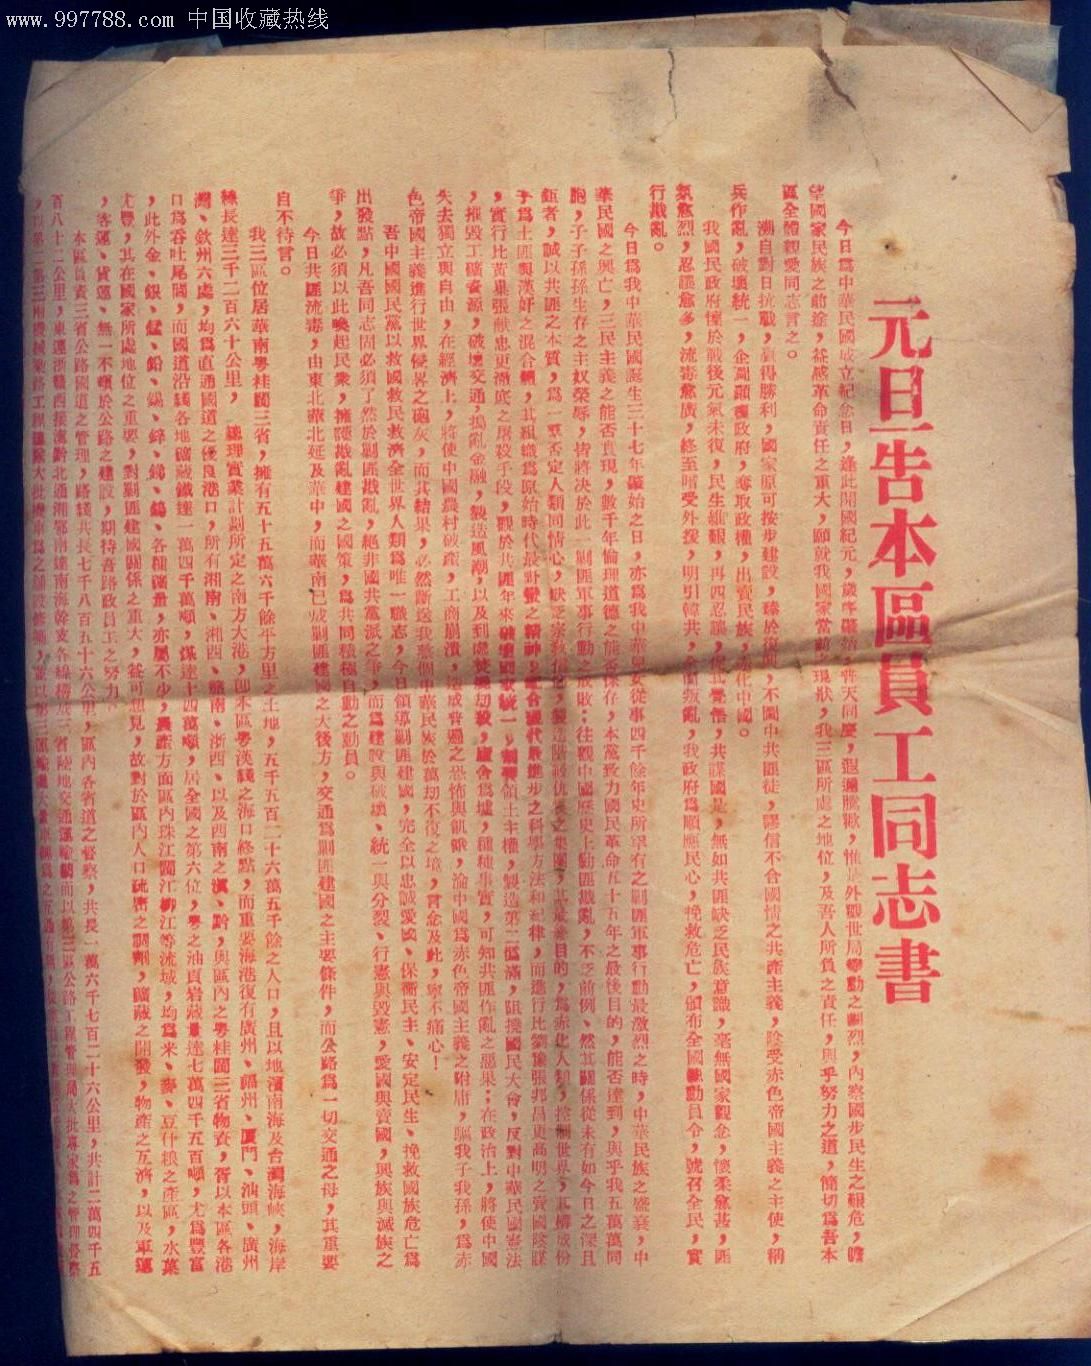 www.997788.com 中国收藏热线
元旦告本區員工同志書
今日爲中華民國成立紀念日，逢此開國紀元，歲序肇始，普天同慶，遐邇騰歡，惟是外觀世局變動之劇烈，內察國步民生之艱危，瞻
望國家民族之前途，益感革命責任之重大，願就我國家當前之現狀，我三區所處之地位，及吾人所負之責任，與乎努力之道，簡切爲吾本
區全體親愛同志言之。
溯自對日抗戰，贏得勝利，國家原可按步建設，臻於復興，不圖中共匪徒，謬信不合國情之共產主義，陰受赤色帝國主義之主使，稱
兵作亂，破壞統一，企圖顛覆政府，奪取政權，出賣民族，赤化中國。
我國民政府懍於戰後元氣未復，民生維艱，再四忍讓，促其覺悟，共謀國是，無如共匪缺乏民族意識，毫無國家觀念，懷柔愈甚，匪
氛愈烈，忍讓愈多，流毒愈廣，終至暗受外援，明引韓共，全面叛亂，我政府爲順應民心，挽救危亡，頒布全國總動員令，號召全民，實
行戡亂。
今日爲我中華民國誕生三十七年肇始之日，亦爲我中華兒女從事四千餘年史所罕有之剿匪軍事行動最激烈之時，中華民族之盛衰，中
華民國之興亡，三民主義之能否實現，數千年倫理道德之能否保存，本黨致力國民革命五十五年之最後目的，能否達到，與乎我五萬萬同
胞，子子孫孫生存之主奴榮辱，皆將決於此一剿匪軍事行動之成敗；往觀中國歷史上勦匪戡亂，不乏前例，然其關係從未有如今日之深且
鉅者，誠以共匪之本質，爲一羣否定人類同情心，缺乏宗教信仰，製造階級仇恨之集團，其最終目的，爲赤化人類，控制世界，其構成份
子爲土匪與漢奸之混合體，其組織爲原始時代最野蠻之精神，配合現代最進步之科學方法和紀律，而進行比劉豫張邦昌更高明之賣國陰謀
，實行比黃巢張献忠更澈底之屠殺手段，觀於共匪年來破壞國家統一，割裂領土主權，製造第二僞滿，阻撓國民大會，反對中華民國憲法
，摧毀工礦資源，破壞交通，搗亂金融，製造風潮，以及到處焚燬刼殺，廬舍爲墟，種種事實，可知共匪作亂之惡果；在政治上，將使中國
失去獨立與自由，在經濟上，將使中國農村破產，工商崩潰，造成普遍之恐怖與飢餓，淪中國爲赤色帝國主義之附庸，驅我子我孫，爲赤
色帝國主義進行世界侵畧之砲灰，而其結果，必然斷送我整個中華民族於萬刧不復之境，言念及此，寧不痛心！
吾中國國民黨以救國救民救濟全世界人類爲唯一職志，今日領導剿匪建國，完全以忠誠愛國、保衛民主、安定民生、挽救國族危亡爲
出發點，凡吾同志固必須了然於剿匪戡亂，絕非國共黨派之爭，而爲建設與破壞、統一與分裂、行憲與毀憲，愛國與賣國，興族與滅族之
爭，故必須以此喚起民衆，擁護戡亂建國之國策，爲共同積極自動之動員。
今日共匪流毒，由東北華北延及華中，而華南已成剿匪建國之大後方，交通爲剿匪建國之主要條件，而公路爲一切交通之母，其重要
自不待言。
我三區位居華南粵桂閩三省，擁有五十五萬六千餘平方里之土地，五千五百二十六萬五千餘之人口，且以地濱南海及台灣海峽，海岸
線長達三千二百六十公里， 總理實業計劃所定之南方大港，即本區粵漢綫之海口終點，而重要海港復有廣州、福州、厦門、汕頭、廣州
灣、欽州六處，均爲直通國道之優良港口，所有湘南、湘西、贛南、浙西、以及西南之滇、黔，與區內之粵桂閩三省物資，胥以本區各港
口爲吞吐尾閭，而國道沿綫各地礦藏鐵達一萬四千萬噸，煤達十四萬噸，居全國之第六位，粵之油頁岩藏量達七萬四千五百噸，尤爲豐富
，此外金、銀、錳、鉛、錫、鋅、銻、鎢、各種礦量，亦屬不少，農產方面區內珠江閩江柳江等流域，均爲米、麥、豆什粮之產區，水菓
尤豐，其在國家所處地位之重要，對剿匪建國關係之重大，益可想見，故對於區內人口疏密之調劑，礦藏之開發，物產之互濟，以及軍運
，客運、貨運、無一不賴於公路之建設，期待吾路政員工之努力。
本區負責三省公路國道之管理，路綫共長七千八百五十六公里，區內各省道之督察，共長一萬六千七百二十六公里，共計二萬四千五
百八十二公里，東運浙贛西接滇黔北通湘鄂南達南海幹支各綫構成三省陸地交通運輸網而以第三區公路工程管理局大批專家爲之管理督察